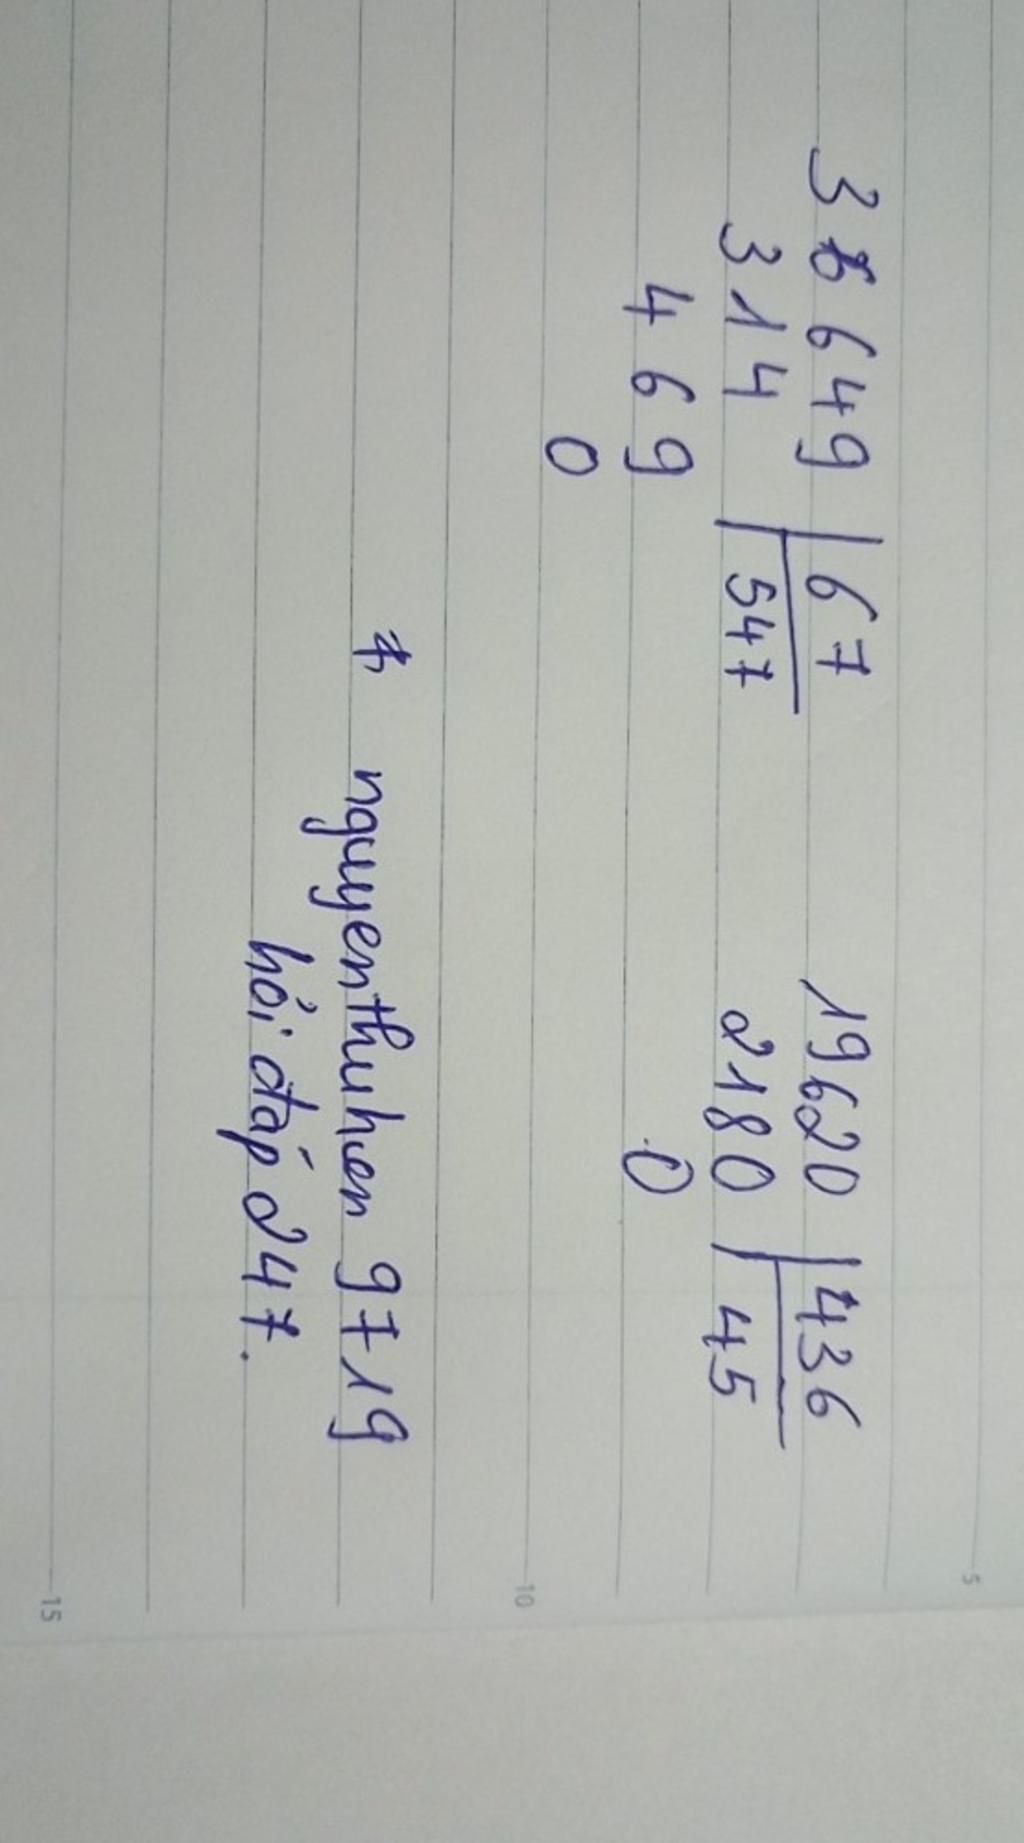 36649 | 67 19620 | 436
314 | 547 2180 | 45
469 0
0
* nguyenthuhien 9719
hỏi đáp 247.
5
10
15